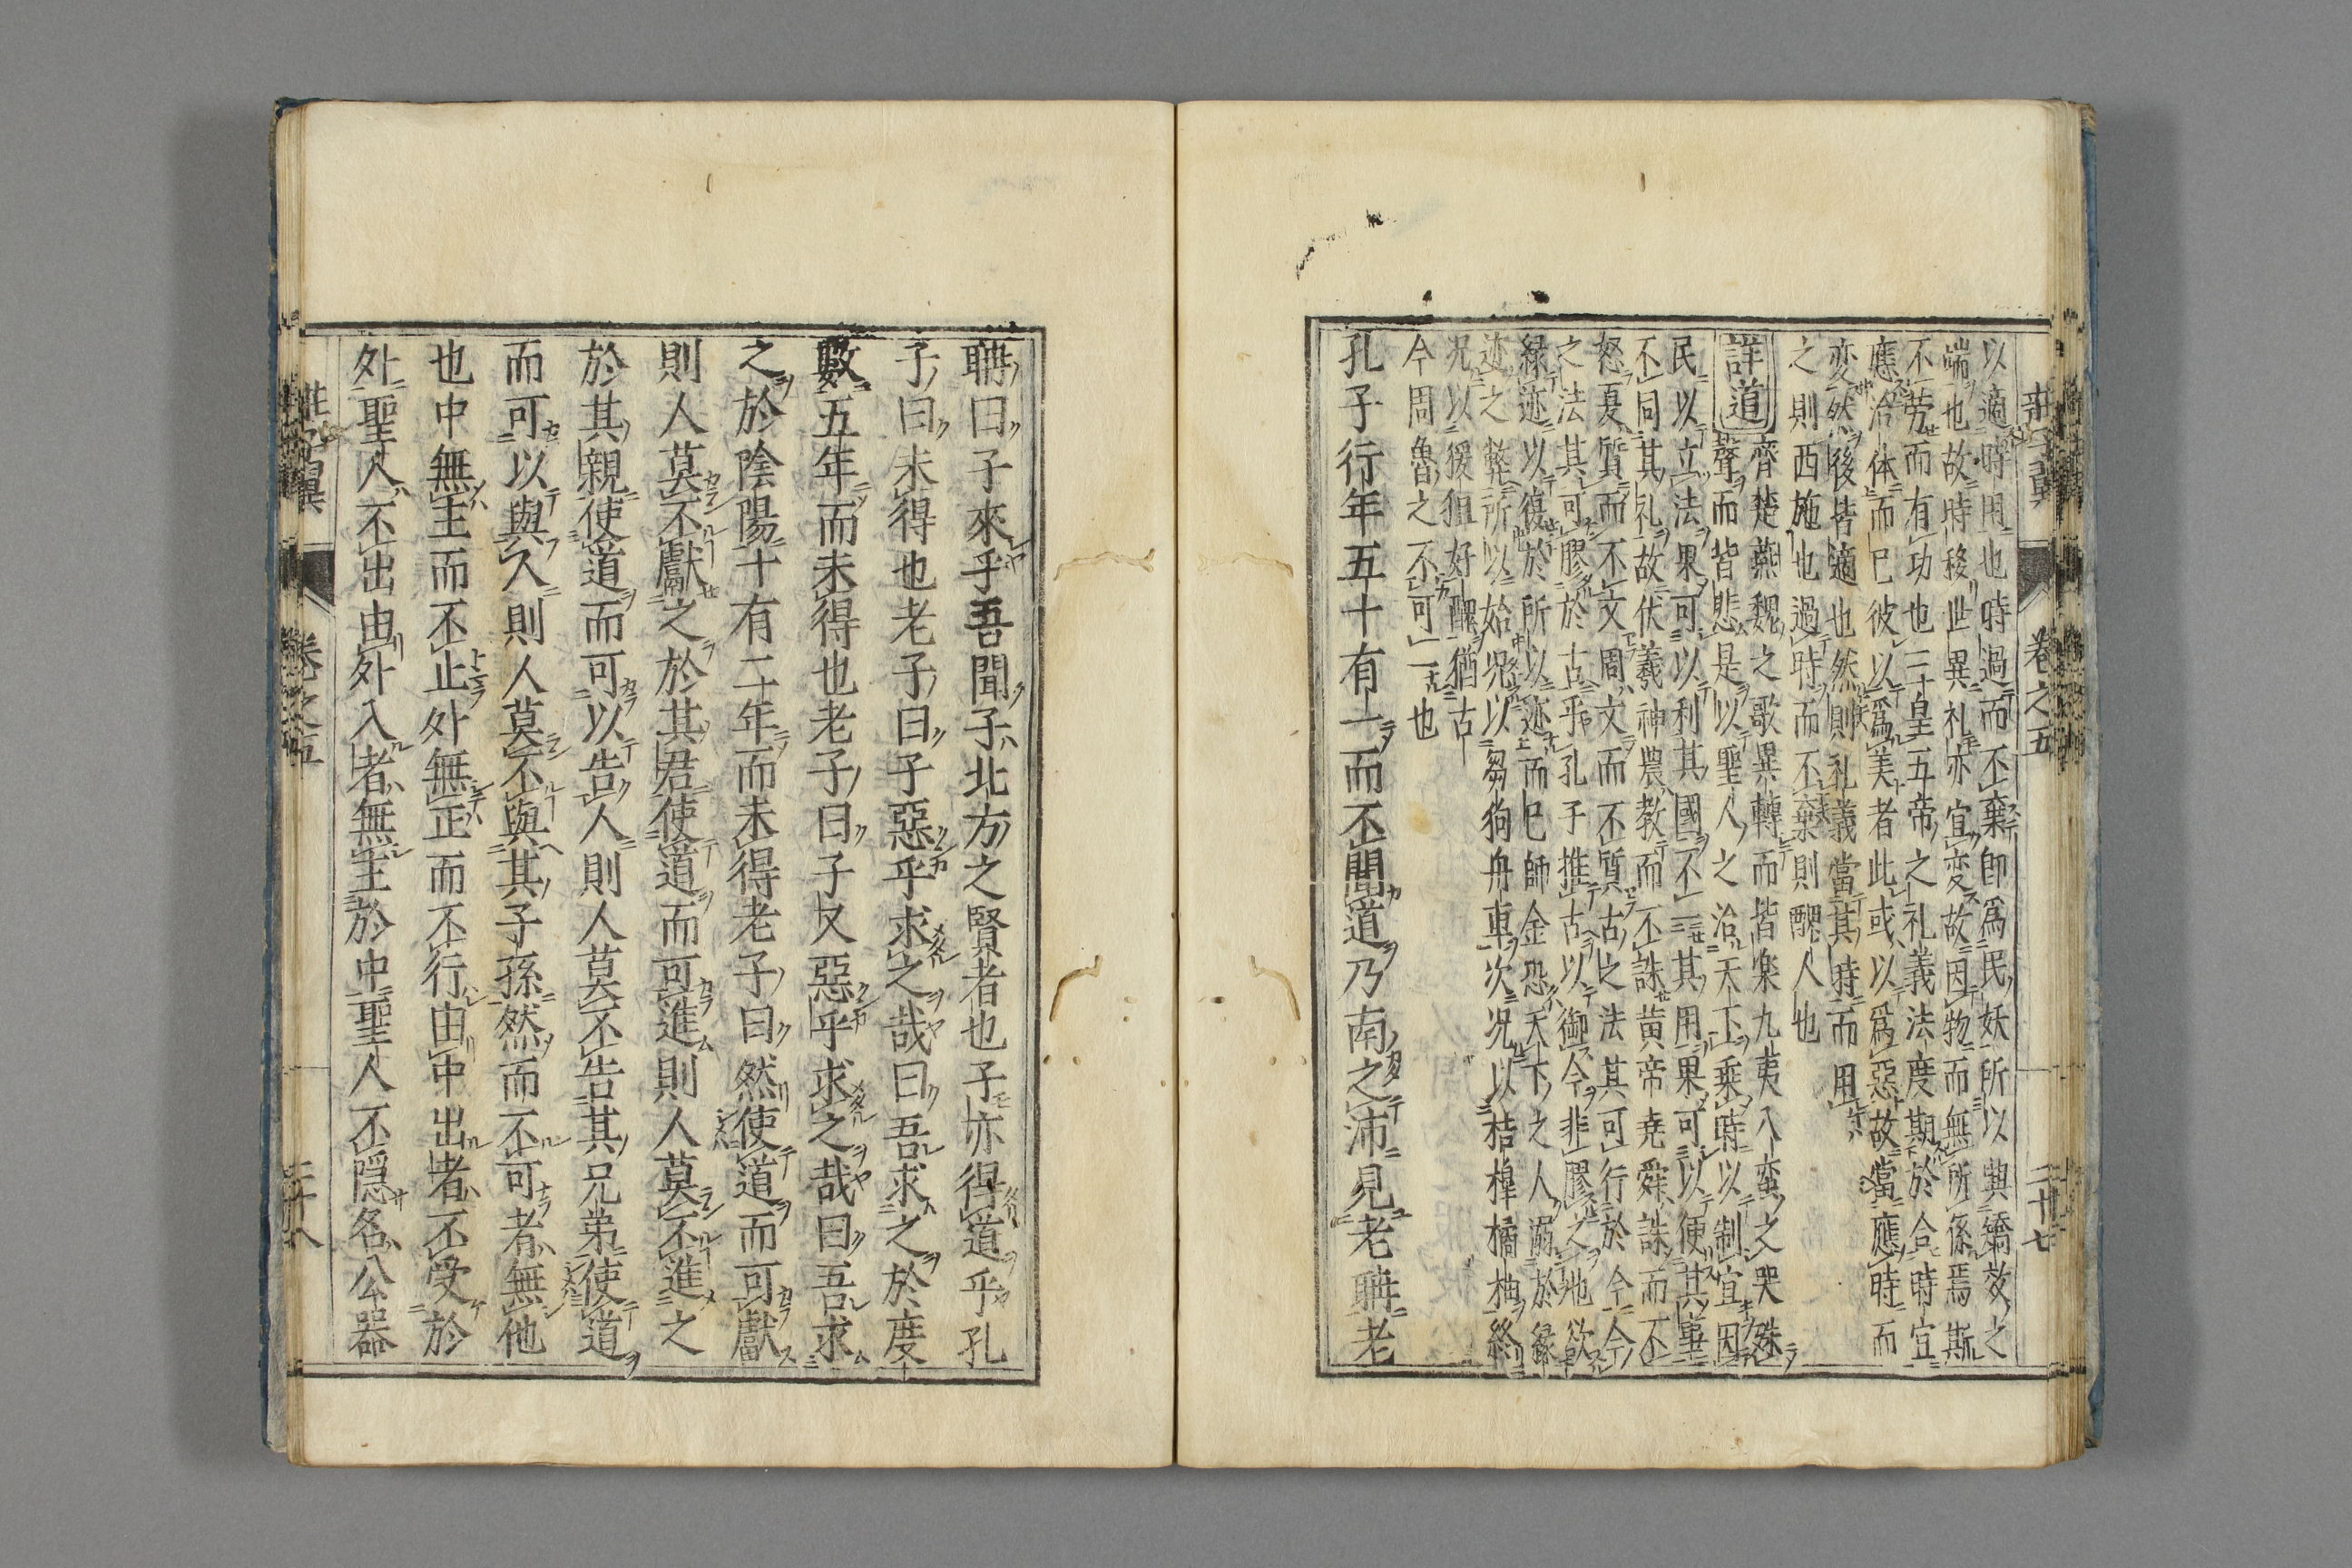 莊子翼 卷之五 二十七
以適時用也時過而不棄即爲民妖所以興矯效之
端也故時移世異礼亦宜変故因物而無所係焉斯
不労而有功也三皇五帝之礼義法度期於合時宜
應治体而已彼以爲美者此或以爲惡故當應時而
変然後皆適也然則礼義當其時而用
之則西施也過時而不棄則醜人也
齊楚燕魏之歌異轉而皆楽九夷八蛮之哭殊
詳道
聲而皆悲是以聖人之治天下乘時以制宜因
民以立法果可以利其國不一其用果可以便其事
不同其礼故伏羲神農教而不誅黄帝堯舜誅而不
怒夏質而不文周文而不質古之法其可行於今今
之法其可膠於古乎孔子推古以御今非膠之也欲
緑迹以復於所以迹而已師金恐天下之人溺於緑
迹之弊所以始况以芻狗舟車次况以桔槹橘柚終
况以猨狙好醜猶古
今周魯之不可一也
孔子行年五十有一而不聞道乃南之沛見老聃老
聃曰子來乎吾聞子北方之賢者也子亦得道乎孔
子曰未得也老子曰子惡乎求之哉曰吾求之於度
數五年而未得也老子曰子又惡乎求之哉曰吾求
之於陰陽十有二年而未得老子曰然使道而可獻
則人莫不獻之於其君使道而可進則人莫不進之
於其親使道而可以告人則人莫不告其兄弟使道
而可以與人則人莫不與其子孫然而不可者無他
也中無主而不止外無正而不行由中出者不受於
外聖人不出由外入者無主於中聖人不隱名公器
莊子翼 卷之五 二十八